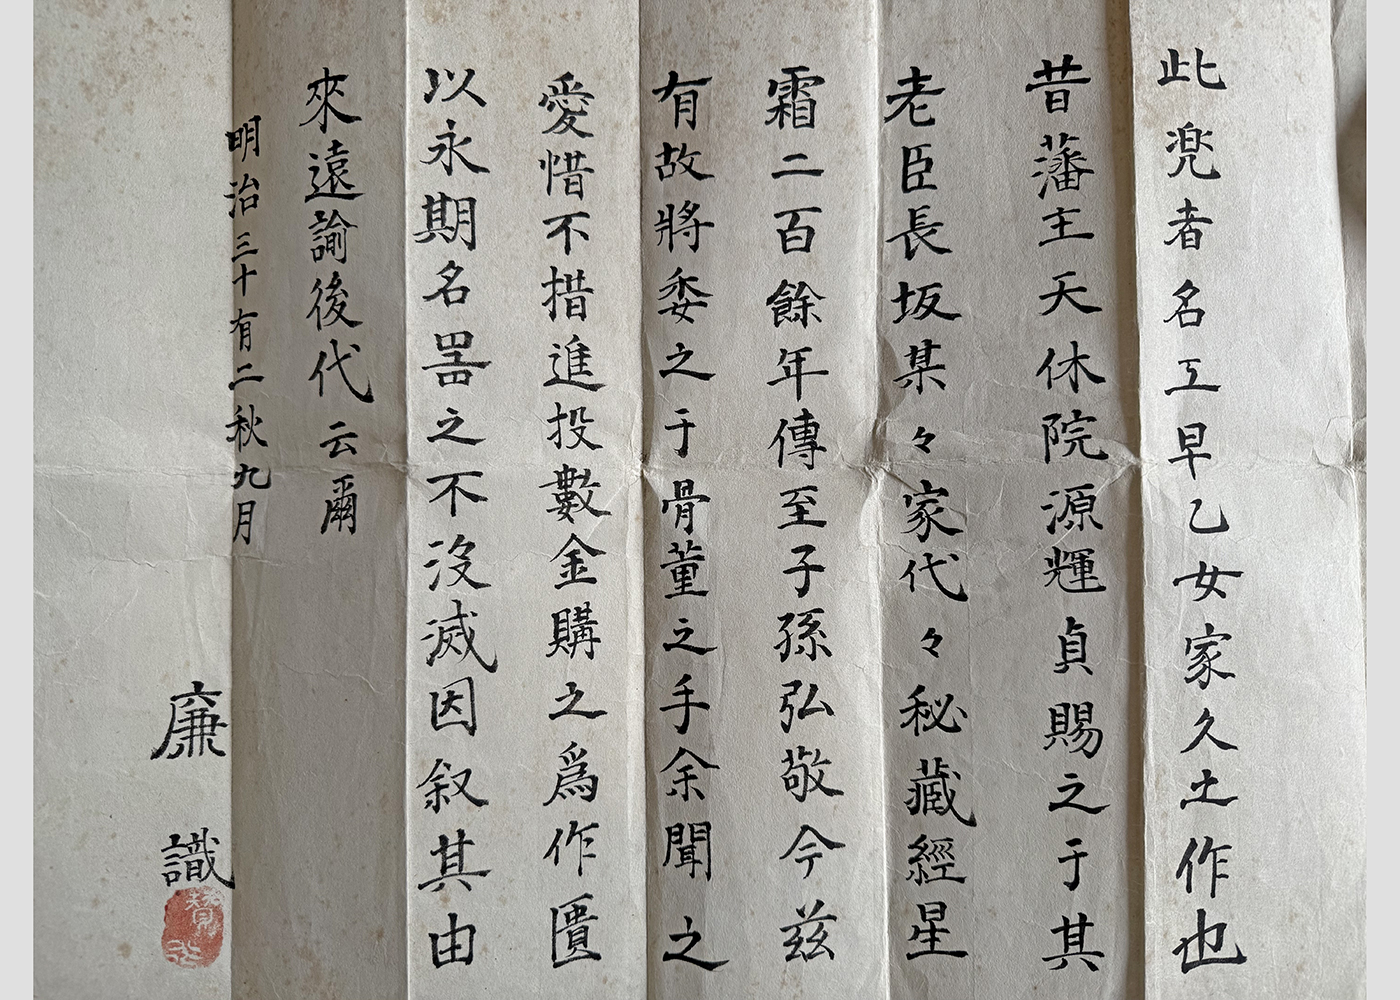 此兜者名工早乙女家久土作也
昔藩主天休院源輝貞賜之于其
老臣長坂某々家代々秘藏經星
霜二百餘年傳至子孫弘敬今茲
有故將委之于骨董之手余聞之
愛惜不措進投數金購之爲作匱
以永期名噐之不沒滅因叙其由
來遠諭後代云爾
明治三十有二秋九月
廉識